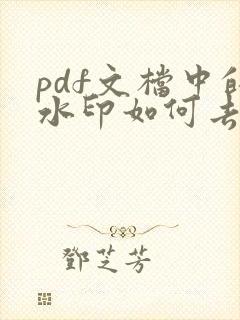 pdf文檔中的
水印如何去
鄧芝芳